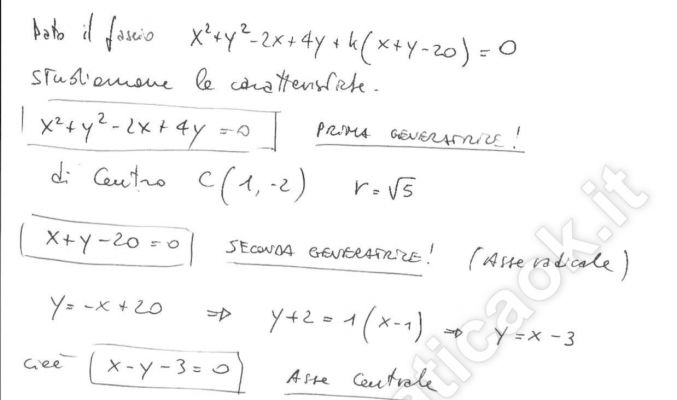 Dato il fascio x²+y²-2x+4y+k(x+y-20)=0
studiamone le caratteristiche.
x²+y²-2x+4y=0 PRIMA GENERATRICE!
di centro C(1,-2) r=√5
x+y-20=0 SECONDA GENERATRICE! (Asse radicale)
y=-x+20 ⇒ y+2=1(x-1) ⇒ y=x-3
cioè x-y-3=0 Asse Centrale
aticaok.it